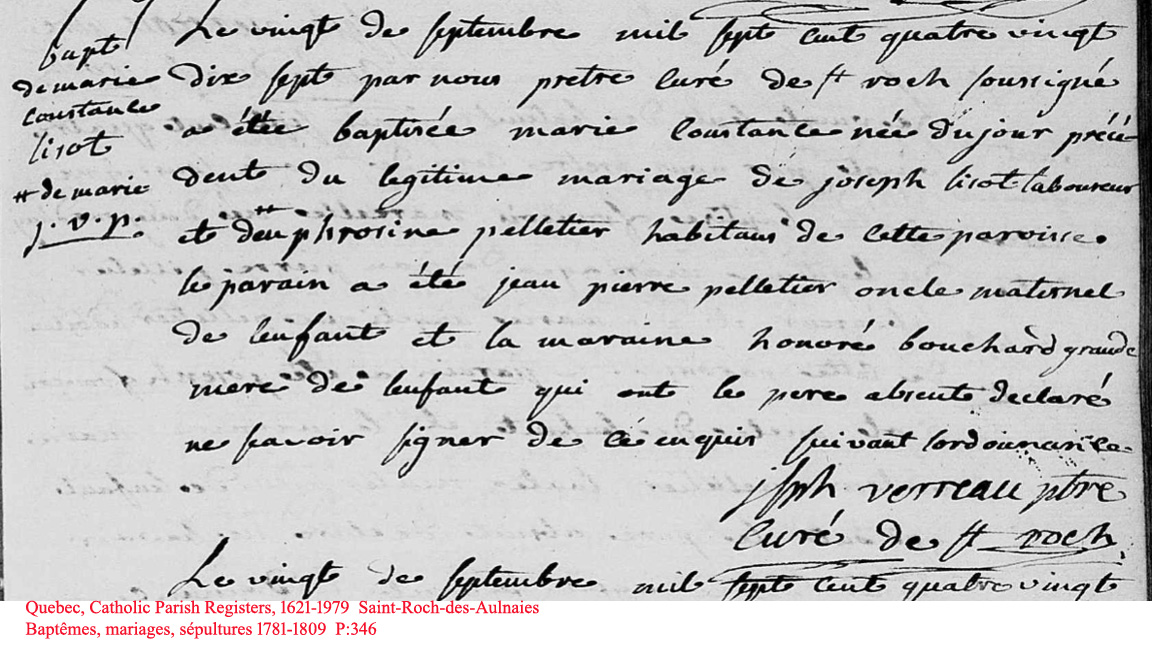 bapt
de marie
constance
lisot
# de marie
j. v. p.
Le vingt de septembre mil sept cent quatre vingt
dix sept par nous pretre curé de st roch soussigné
a étée baptisée marie constance née du jour précé
dent du legitime mariage de joseph lisot laboureur
et # d'euphrosine pelletier habitans de cette paroisse.
le parain a été jean pierre pelletier oncle maternel
de lenfant et la maraine honoré bouchard grande
mere de lenfant qui ont le pere absent declaré
ne savoir signer de ce enquis suivant lordonnance
jsph verreau ptre
curé de st roch.
Le vingt de septembre mil sept cent quatre vingt
Quebec, Catholic Parish Registers, 1621-1979 Saint-Roch-des-Aulnaies
Baptêmes, mariages, sépultures 1781-1809 P:346